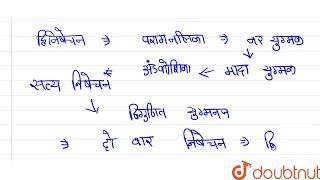 द्विनिषेचन ⇒ परागनलिका ⇒ नर युग्मक
सत्य निषेचन ← अंडकोशिका ← मादा युग्मक
↓ द्विगुणित युग्मनज
⇒ दो बार निषेचन ⇒ द्वि
doubtnut